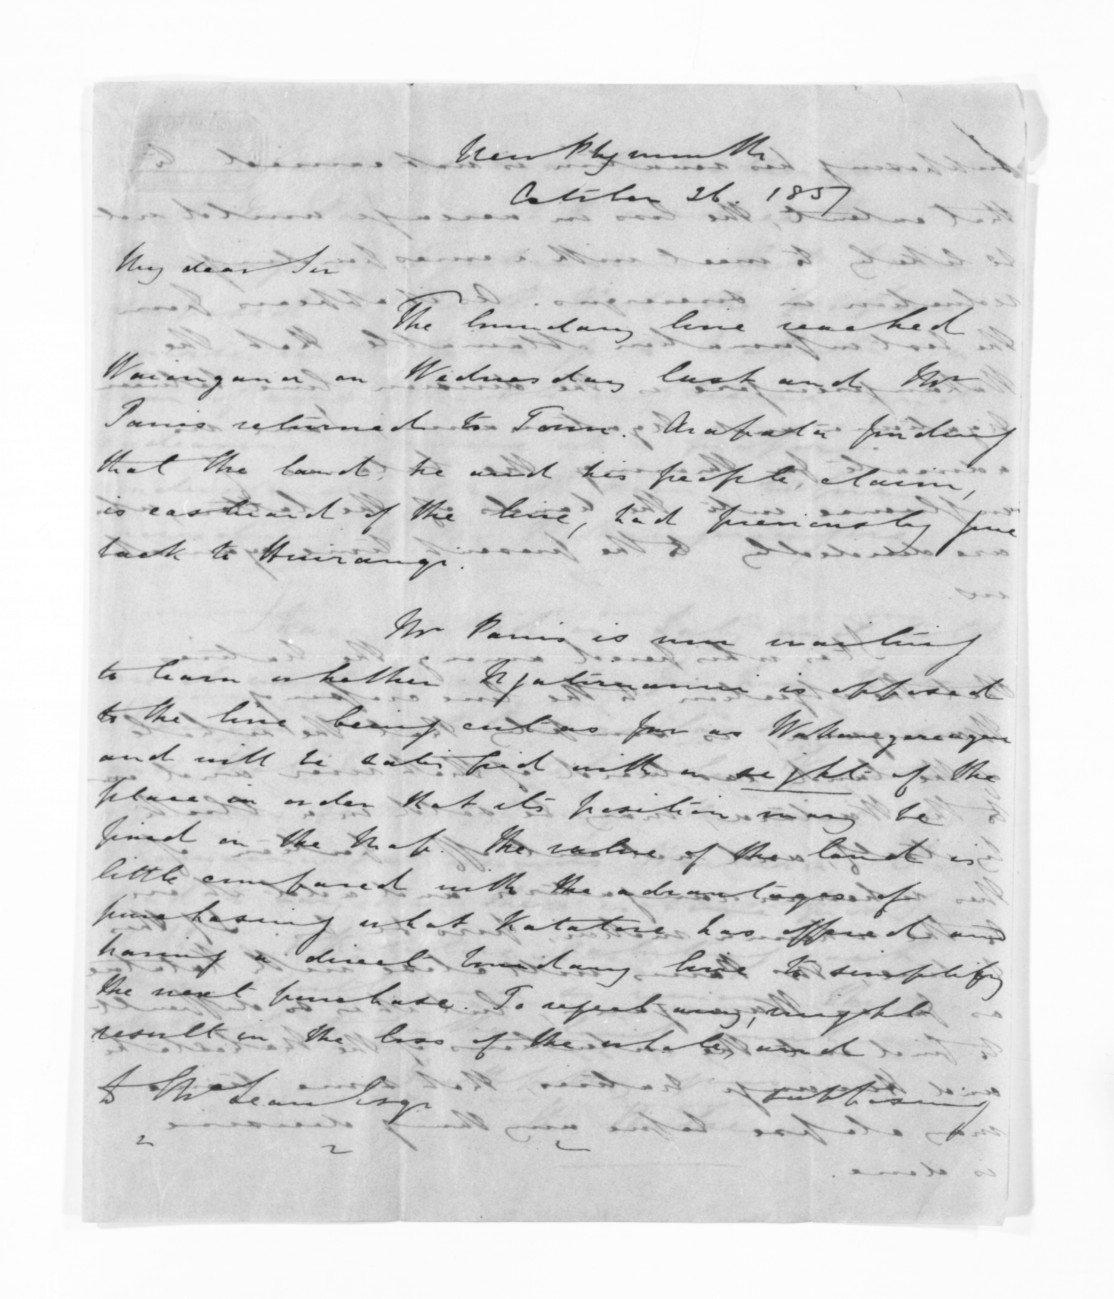 New Plymouth
October 26. 1857
My dear Sir
The boundary line reached
on Wednesday last and Mr
Parris returned to Town. finding
that the land, he and his people, claim,
is eastward of the line, had previously gone
back to Huirangi.
Mr Parris is now waiting
to learn whether is opposed
to the line being cut as far as
and will be satisfied with a sight of the
place in order that its position may be
fixed on the Map. The value of the land is
little compared with the advantages of
purchasing what Katatore has offered and
having a direct boundary line to simplify
the next purchase. To repeat may, might
result in the loss of the whole, and
D McLean Esqr supposing